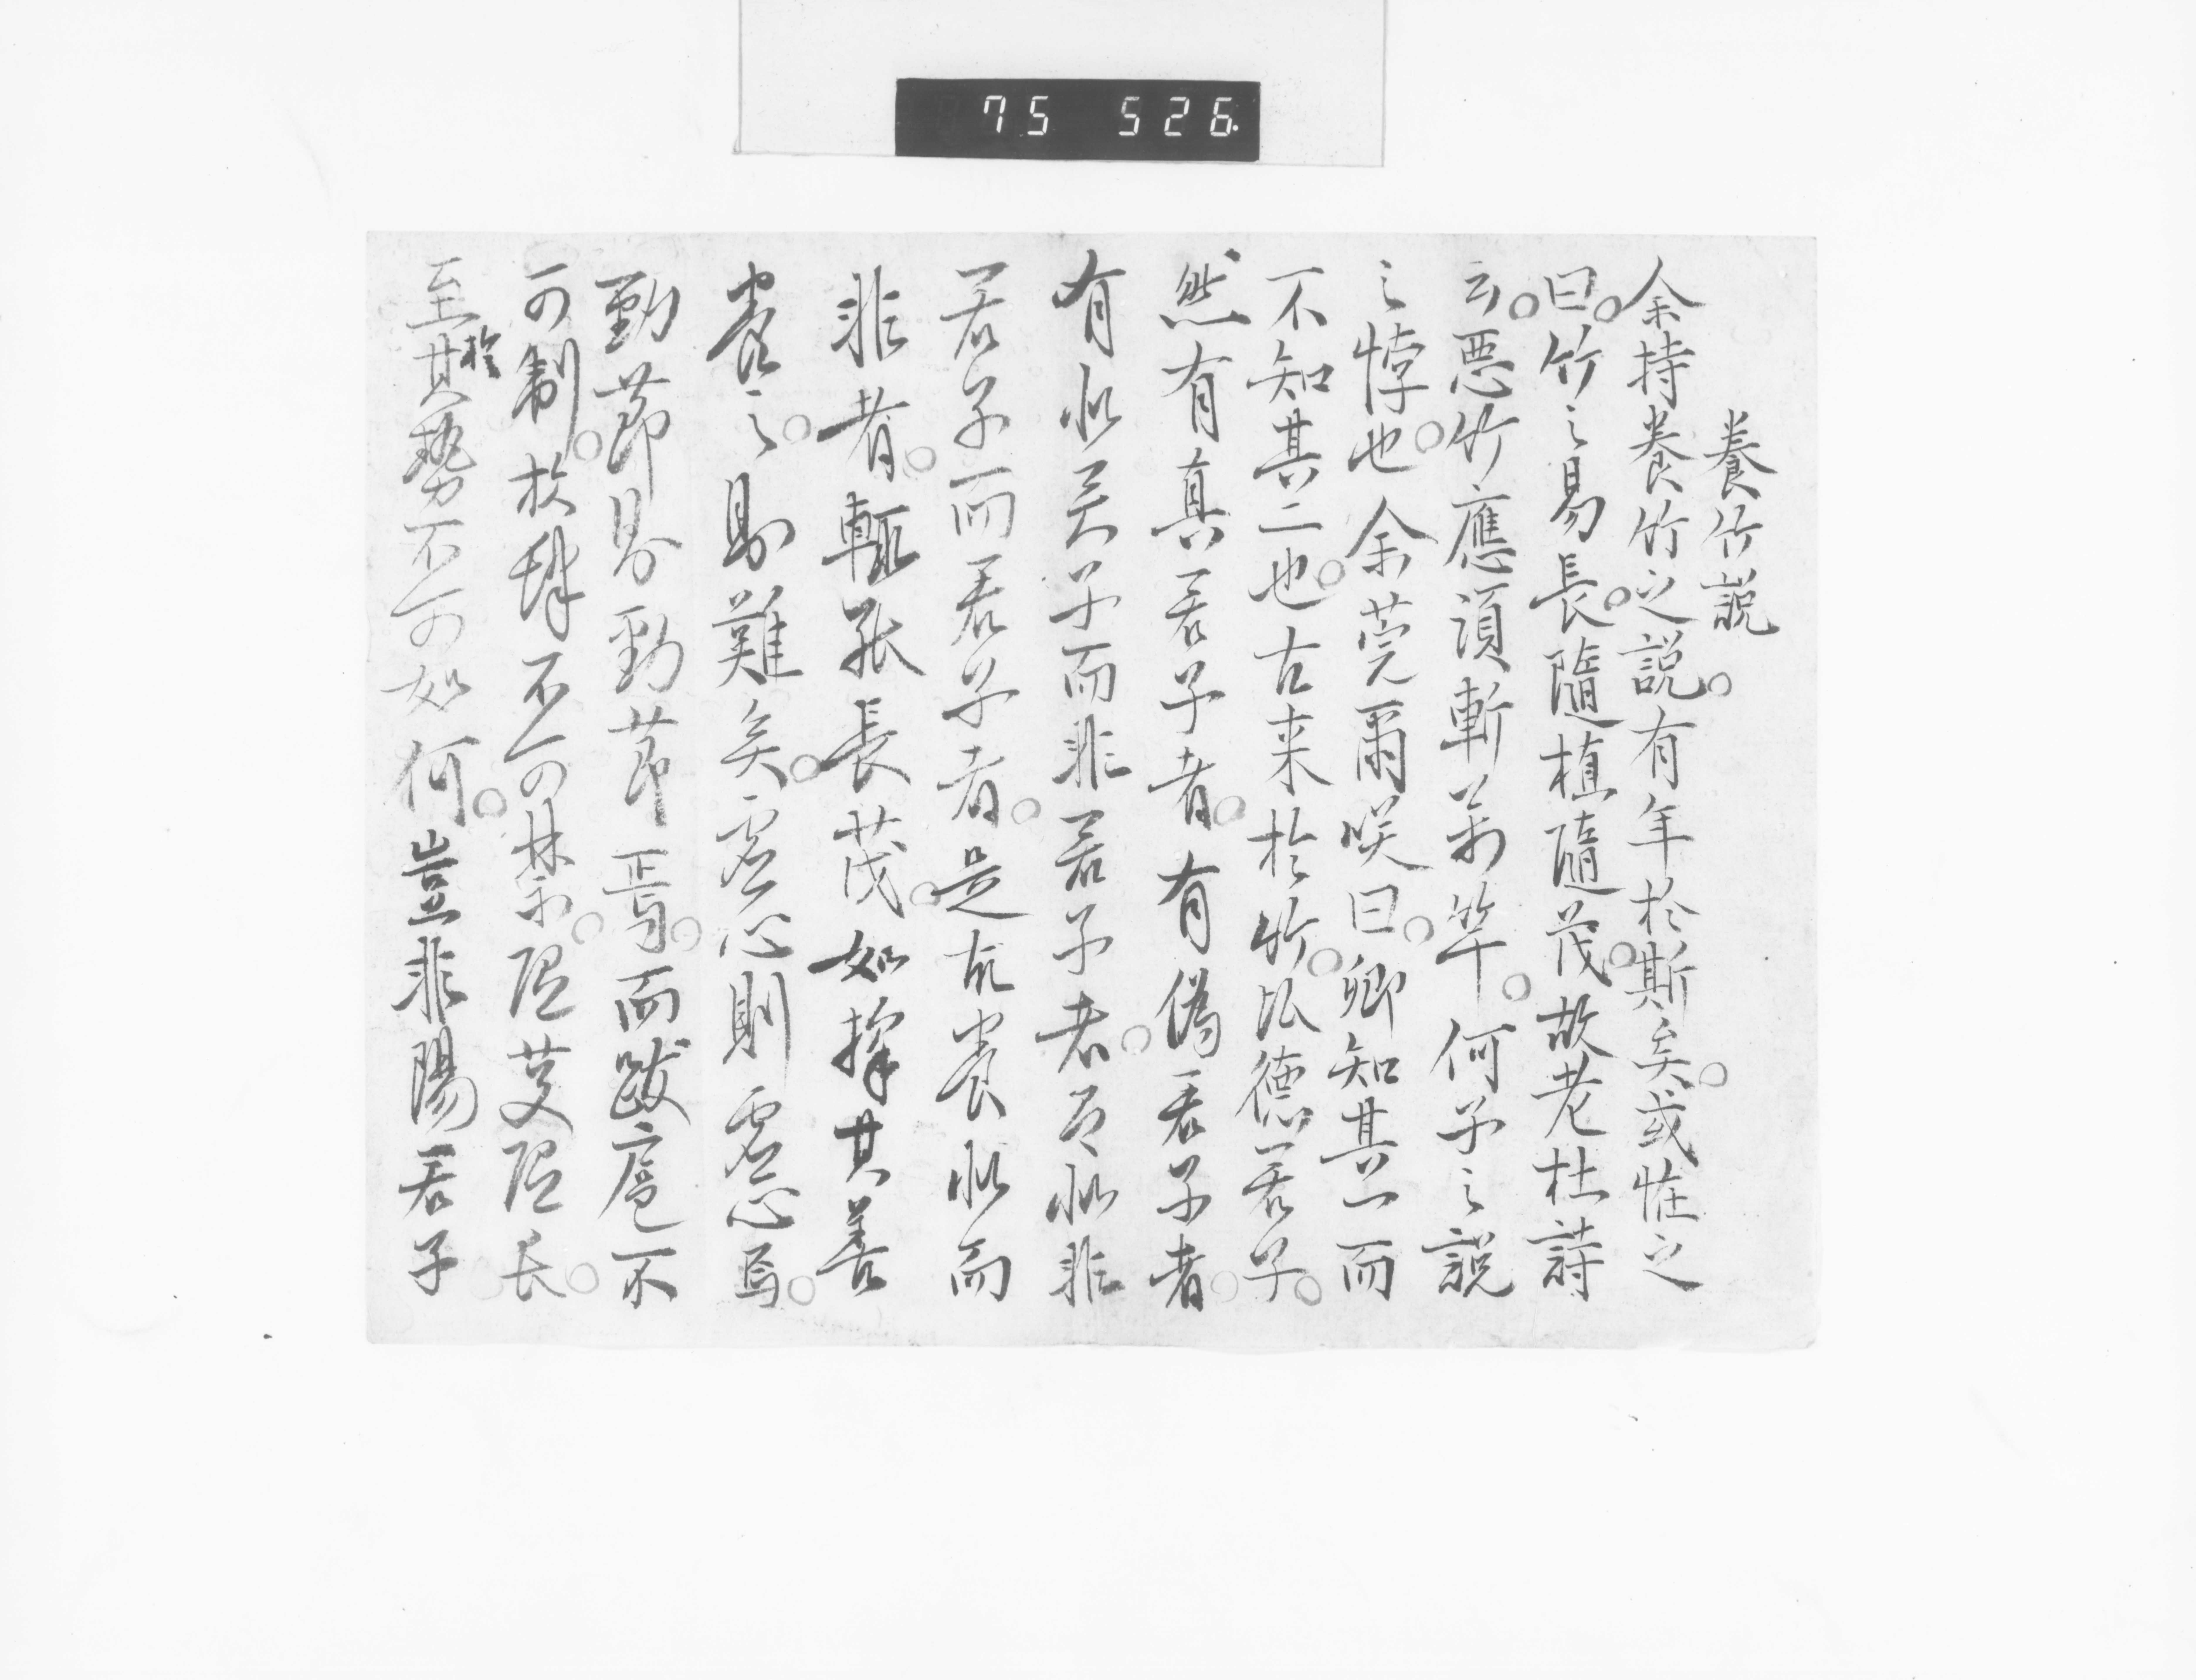 75 526
養竹説
余持養竹之説○有年於斯矣○或怪之
曰○竹之易長○隨植隨茂○故老杜詩
云○惡竹應須斬萬竿○何子之説
之悖也○余莞爾咲曰○卿知其一而
不知其二也○古来於竹○比德君子○
然有真君子者○有偽君子者○
有似君子而非君子者○有似非
君子而君子者○是故養似而
非者○輒張長茂○如擇其善
養之○則難矣○虚心則虚心焉○
勁節則勁節焉○而跋扈不
可制○放肆不可禁○隨芟隨長○
至於其勢不可如何○豈非陽君子